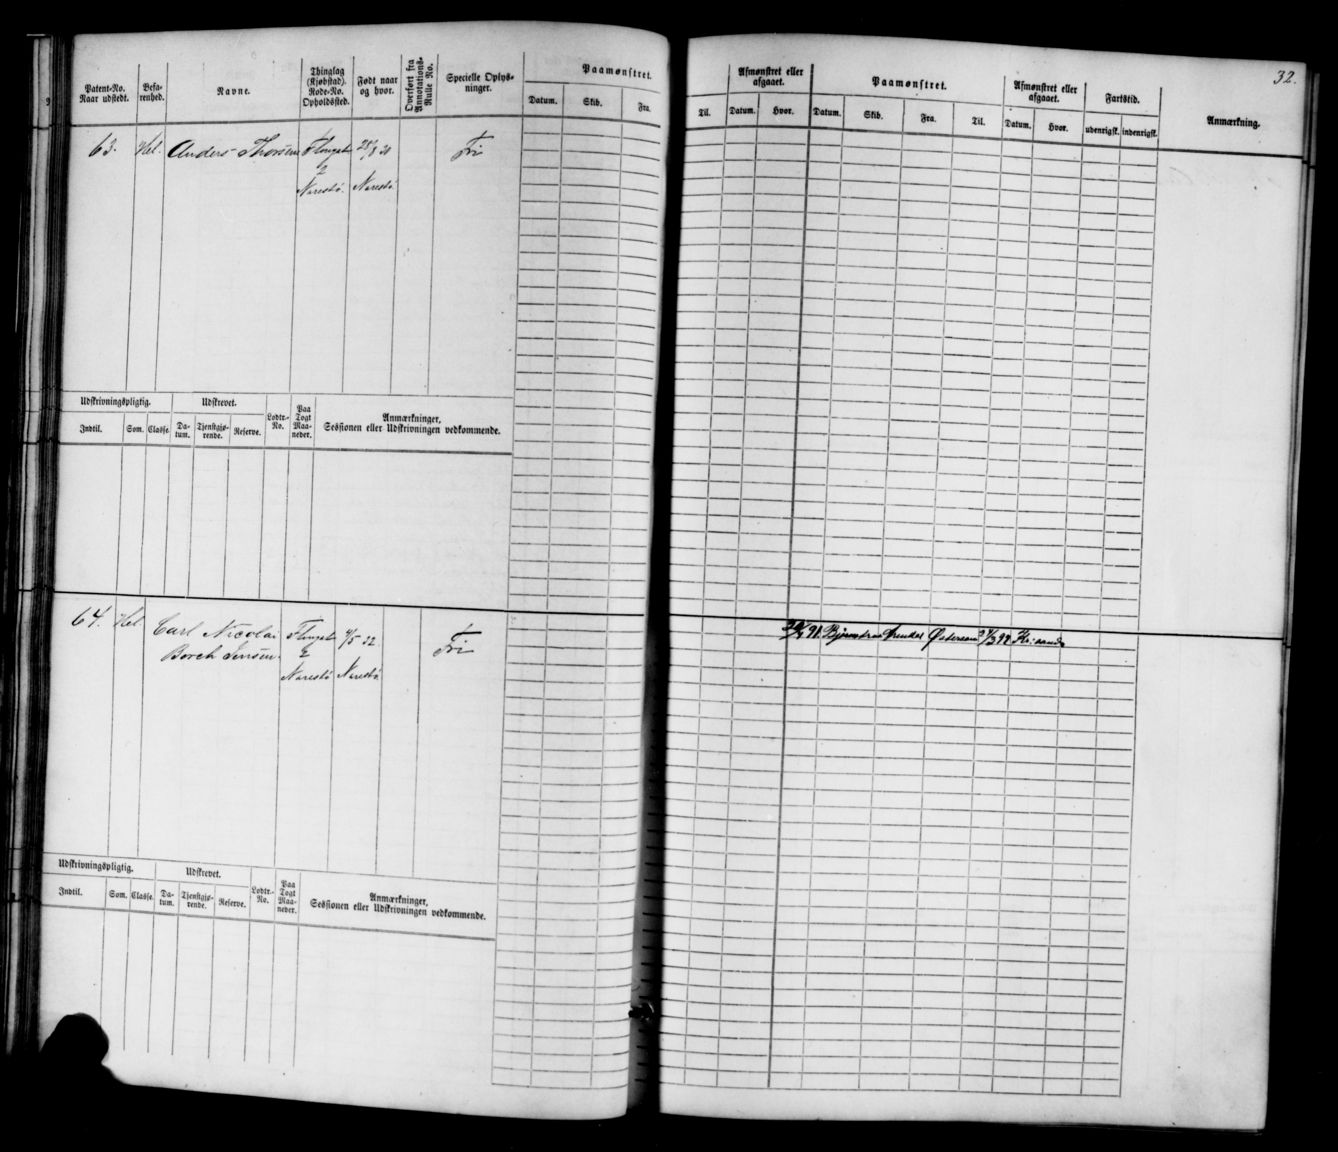 32.
Patent-No. Naar udstedt.
Befarenhed.
Navne.
Thinglag (Kjøbstad). Rode-No. Opholdssted.
Født naar og hvor.
Overført fra Annotations-Rulle No.
Specielle Oplysninger.
Paamønstret.
Datum. Skib. Fra.
Til.
Afmønstret eller afgaaet.
Datum. Hvor.
Paamønstret.
Datum. Skib. Fra. Til.
Afmønstret eller afgaaet.
Datum. Hvor.
Fartstid.
udenrigsk. indenrigsk.
Anmærkning.
63. Hel. Anders Thorsen
2
Narestø. Narestø
Fri
Udskrivningspligtig. Udskrevet. Lodtr.-No. Paa Togt Maaneder. Anmærkninger, Sessionen eller Udskrivningen vedkommende.
Indtil. Som. Classe. Datum. Tjenstgjørende. Reserve.
64. Hel Carl Nicolai
Borch Jensen
5/5 32
2
Narestø Narestø
Fri
Udskrivningspligtig. Udskrevet. Lodtr.-No. Paa Togt Maaneder. Anmærkninger, Sessionen eller Udskrivningen vedkommende.
Indtil. Som. Classe. Datum. Tjenstgjørende. Reserve.